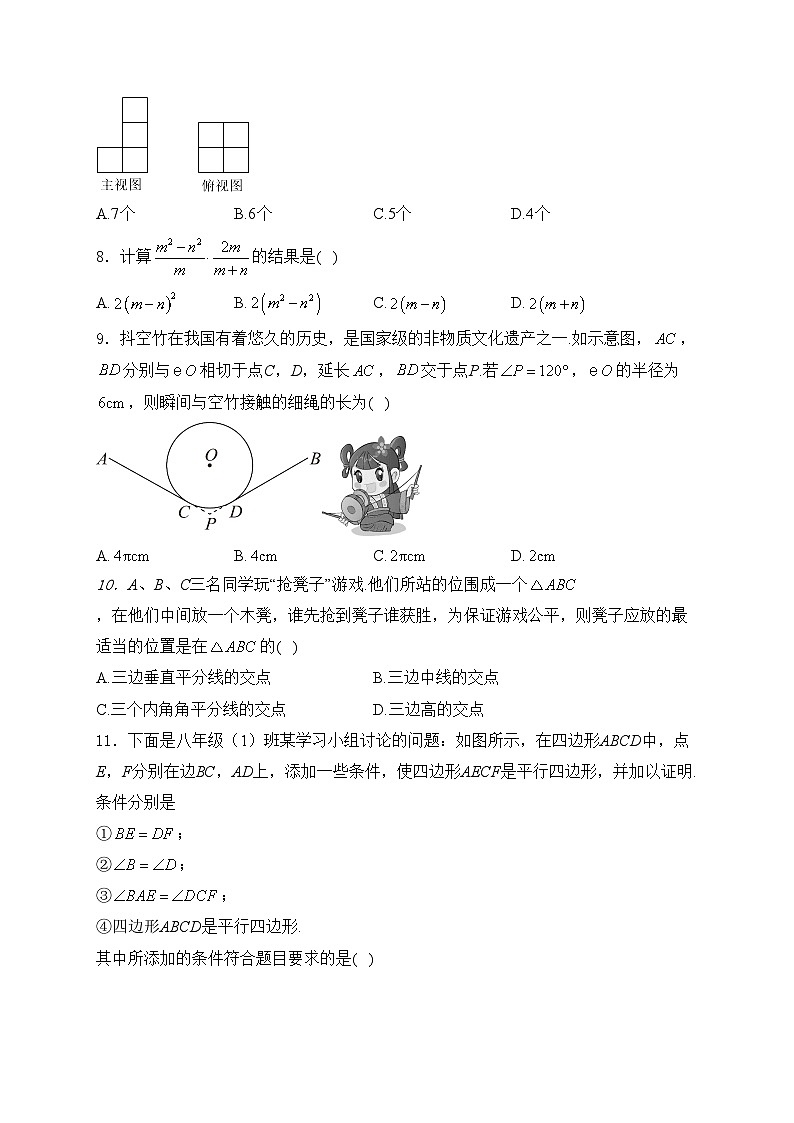 主视图 俯视图
A.7个 B.6个 C.5个 D.4个
8．计算 \frac{m^2-n^2}{m}·\frac{2m}{m+n} 的结果是( )
A. 2(m-n)^2 B. 2(m^2-n^2) C. 2(m-n) D. 2(m+n)
9．抖空竹在我国有着悠久的历史，是国家级的非物质文化遗产之一.如示意图，AC，
BD分别与eO相切于点C，D，延长AC，BD交于点P.若∠P=120°，eO的半径为
6cm，则瞬间与空竹接触的细绳的长为( )
A O B
C P D
A. 4πcm B. 4cm C. 2πcm D. 2cm
10．A、B、C三名同学玩“抢凳子”游戏.他们所站的位围成一个△ABC
，在他们中间放一个木凳，谁先抢到凳子谁获胜，为保证游戏公平，则凳子应放的最
适当的位置是在△ABC的( )
A.三边垂直平分线的交点 B.三边中线的交点
C.三个内角角平分线的交点 D.三边高的交点
11．下面是八年级（1）班某学习小组讨论的问题：如图所示，在四边形ABCD中，点
E，F分别在边BC，AD上，添加一些条件，使四边形AECF是平行四边形，并加以证明.
条件分别是
①BE=DF；
②∠B=∠D；
③∠BAE=∠DCF；
④四边形ABCD是平行四边形.
其中所添加的条件符合题目要求的是( )